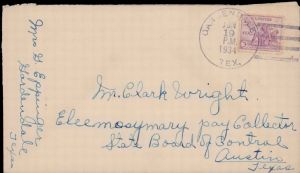 Mrs G Eppinger
Gardendale
Texas
JUN
19
P.M.
1934
TEX.
Mr. Clark Wright.
Eleemosymary pay Collector
State Board of Control
Austin
Texas